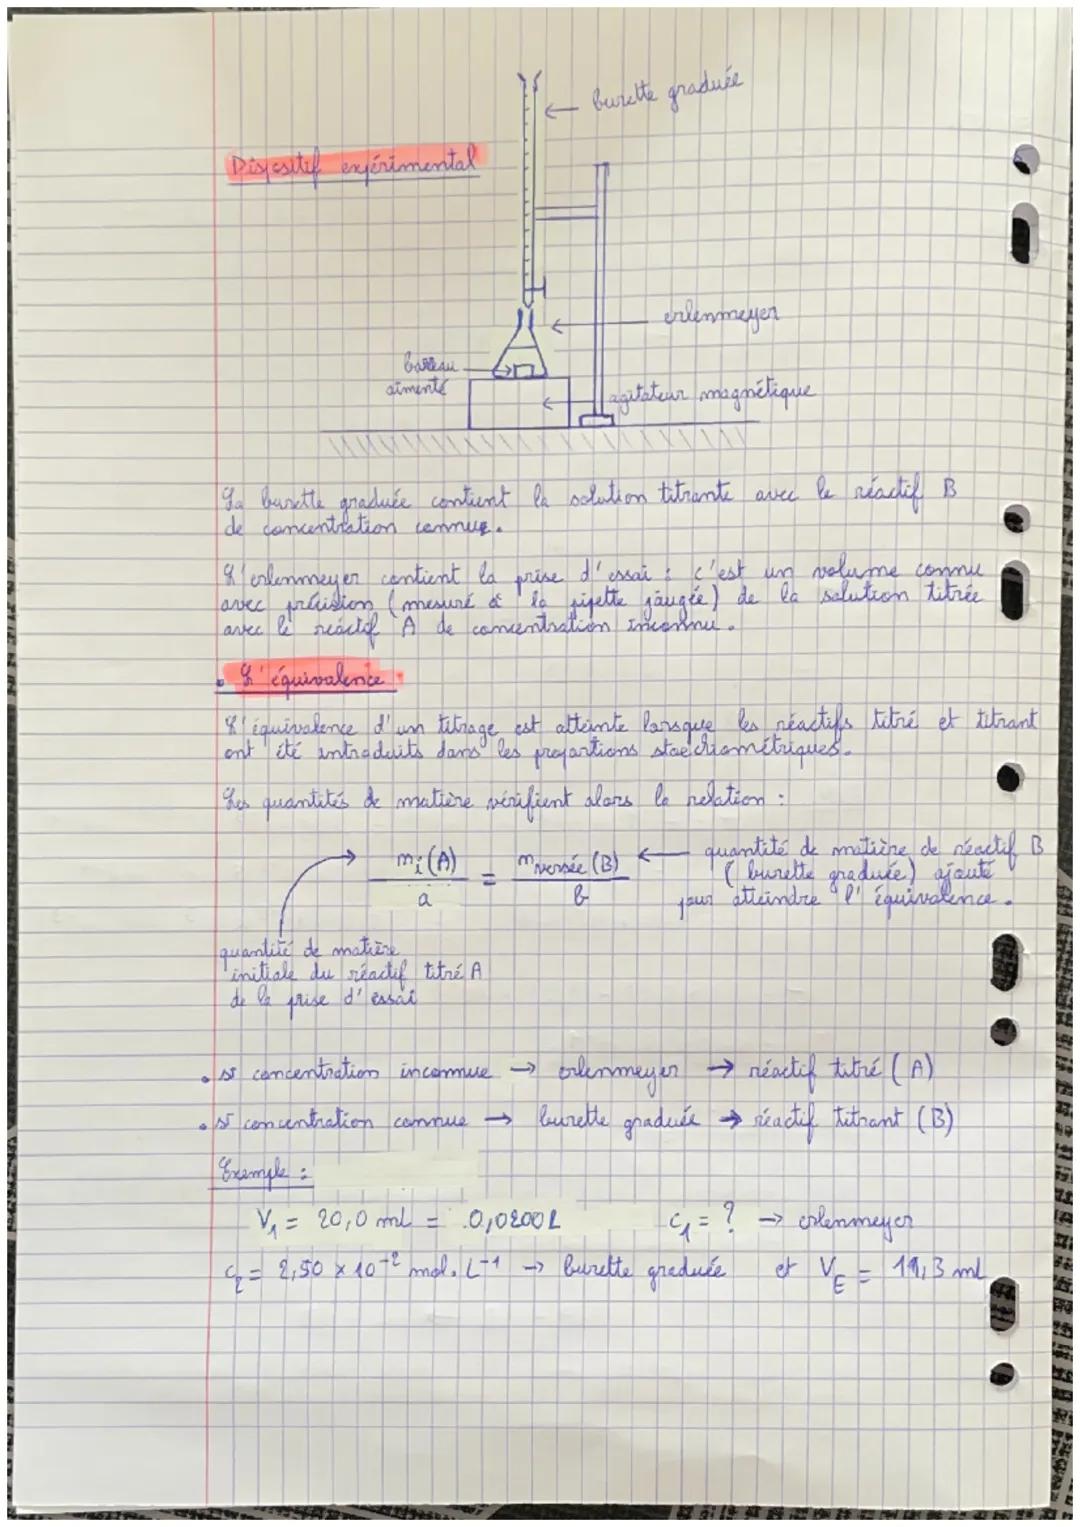 burette graduée
Dispositif expérimental
erlenmeyer
barreau
aimenté
agitateur magnétique
La burette graduée contient la solution titrante avec le réactif B
de concentration connue.
L'erlenmeyer contient la prise d'essai : c'est un volume connu
avec précision (mesuré à la pipette gaugée) de la solution titrée
avec le réactif A de concentration inconnu.
• L'équivalence
L'équivalence d'un titrage est atteinte lorsque les réactifs titré et titrant
ont été introduits dans les proportions stoechiométriques.
Les quantités de matière vérifient alors la relation :
ni(A)/a = nversée(B)/b
quantité de matière de réactif B
(burette graduée) ajouté
pour atteindre l'équivalence.
quantité de matière
initiale du réactif titré A
de la prise d'essai
• si concentration inconnue → erlenmeyer → réactif titré (A)
• si concentration connue → burette graduée → réactif titrant (B)
Exemple :
V₁ = 20,0 mL = 0,0200L C₁ = ? → erlenmeyer
C₂ = 2,50 × 10⁻² mol. L⁻¹ → burette graduée et V_E = 19,3 mL